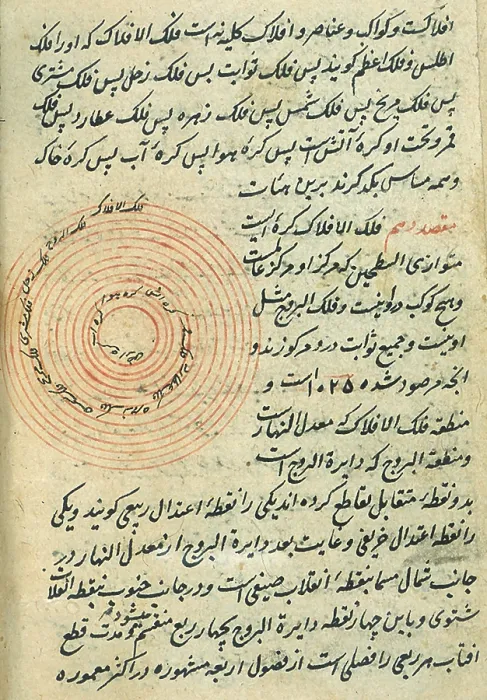 افلاکست و کواکب و عناصر و افلاک کلیه نه است فلک الافلاک که اورا فلک
اطلس و فلک اعظم کویند پس فلک ثوابت پس فلک زحل پس فلک مشتری
پس فلک مریخ پس فلک شمس پس فلک زهره پس فلک عطارد پس فلک
قمر و تحت او کرهٔ آتش است پس کرهٔ هوا پس کرهٔ آب پس کرهٔ خاک
و همه مماس یکدکرند برین هیات
مقصد دهم فلک الافلاک کره ایست
متوازی السطحین که مرکز او مرکز عالمست
و هیچ کوکب درو نیست و فلک البروج مثل
اوست و جمیع ثوابت درو مرکوزند و
آنچه مرصود شده ۱۰۲۵ است و
منطقه فلک الافلاک که معدل النهار است
و منطقة البروج که دایرة البروج است
بدو نقطهٔ متقابل تقاطع کرده اند یکی را نقطهٔ اعتدال ربیعی کویند و یکی
را نقطهٔ اعتدال خریفی و غایت بعد دایرة البروج از معدل النهار در
جانب شمال مسما بنقطهٔ انقلاب صیفی است و در جانب جنوب بنقطهٔ انقلاب
شتوی و باین چهار نقطه دایرة البروج بچهار ربع منقسم میشود و مدت قطع
آفتاب هر ربعی را فصلی است از فصول اربعهٔ مشهوره در اکثر معموره
فلک الافلاک
فلک البروج
فلک زحل
فلک مشتری
فلک مریخ
فلک شمس
فلک زهره
فلک عطارد
فلک قمر
کره آتش
کره هوا
کره آب